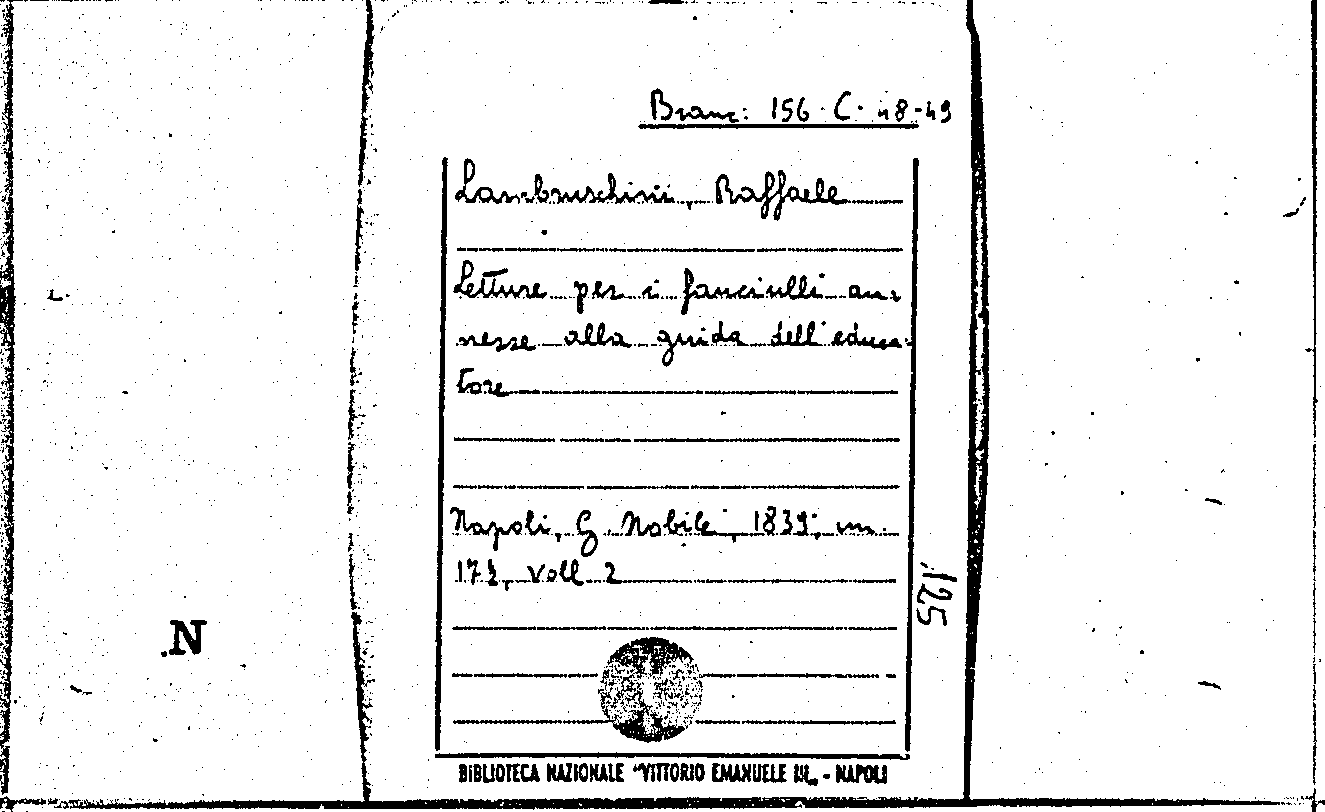 Branc: 156 C. 48-49
Lambruschini, Raffaele
Letture per i fanciulli an-
nesse alla guida dell'educa-
tore
Napoli, G. Nobile, 1839, in
voll 2
125
N
BIBLIOTECA NAZIONALE "VITTORIO EMANUELE III„ - NAPOLI